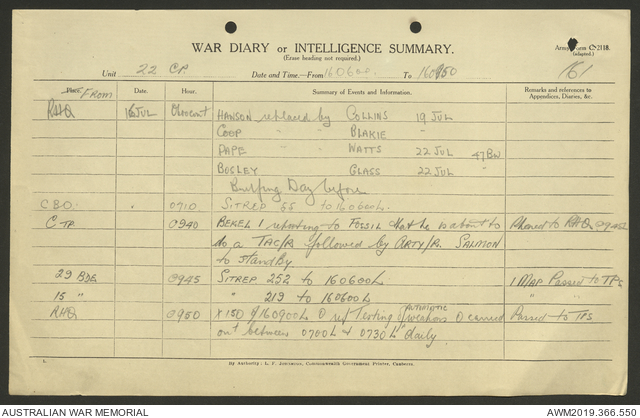 WAR DIARY or INTELLIGENCE SUMMARY.
(Erase heading not required.)
Army Form C. 2118.
(adapted.)
Unit 22 CP. Date and Time—From 160600 To 160950 161
Place. From Date. Hour. Summary of Events and Information. Remarks and references to Appendices, Diaries, &c.
RHQ 16 JUL HANSON replaced by COLLINS 19 JUL
COOP " " BLAKIE "
PAPE " " WATTS 22 JUL 47 Bn
BOSLEY GLASS 22 JUL "
Day before
C.B.O. " 0710 SITREP 55 to 160600L.
C TP. 0940 BEKEL 1 reporting to FOSSIL that he is about to Phoned to RHQ 0945L
do a TAC/R followed by ARTY/R. SALMON
to standby
29 BDE 0945 SITREP 252 to 160600L 1 Map Passed to TPs
15 " " 219 to 160600L " "
RHQ 0950 X150 of 160900L O ref Testing of AUTOMATIC weapons O carried Passed to TPS
out between 0700L & 0730L daily
By Authority: L. F. Johnston, Commonwealth Government Printer, Canberra.
AUSTRALIAN WAR MEMORIAL
AWM2019.366.550